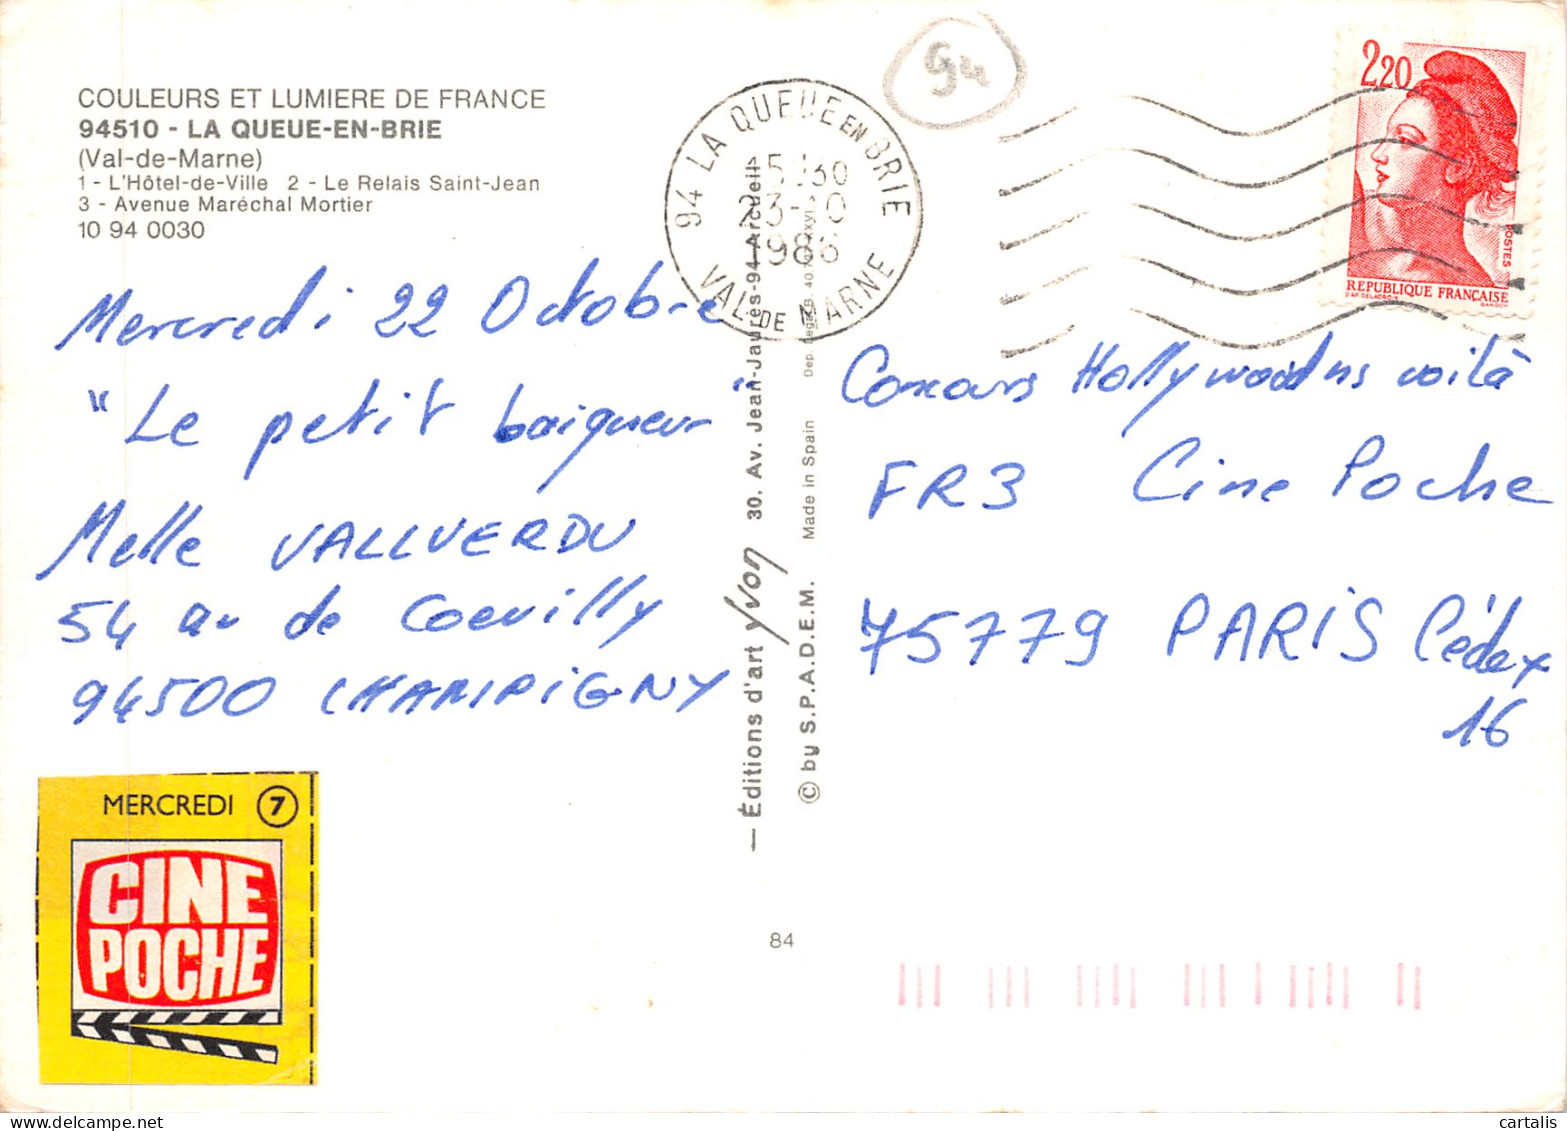 COULEURS ET LUMIERE DE FRANCE
94510 - LA QUEUE-EN-BRIE
(Val-de-Marne)
1 - L'Hôtel-de-Ville 2 - Le Relais Saint-Jean
3 - Avenue Maréchal Mortier
10 94 0030
94 LA QUEUE EN BRIE
15 H30
23-10
1986
VAL-DE MARNE
94
2,20
POSTES
REPUBLIQUE FRANÇAISE
Mercredi 22 Octobre
"Le petit baigneur"
Melle VALLVERDU
54 av de Coeuilly
94500 CHAMPIGNY
Concours Hollywoodns voilà
FR3 Cine Poche
75779 PARIS Cédex
16
— Éditions d'art Yvon 30. Av. Jean-Jaurès-94-Arcueil
© by S.P.A.D.E.M. Made in Spain
MERCREDI 7
CINE
POCHE
84
cartalis